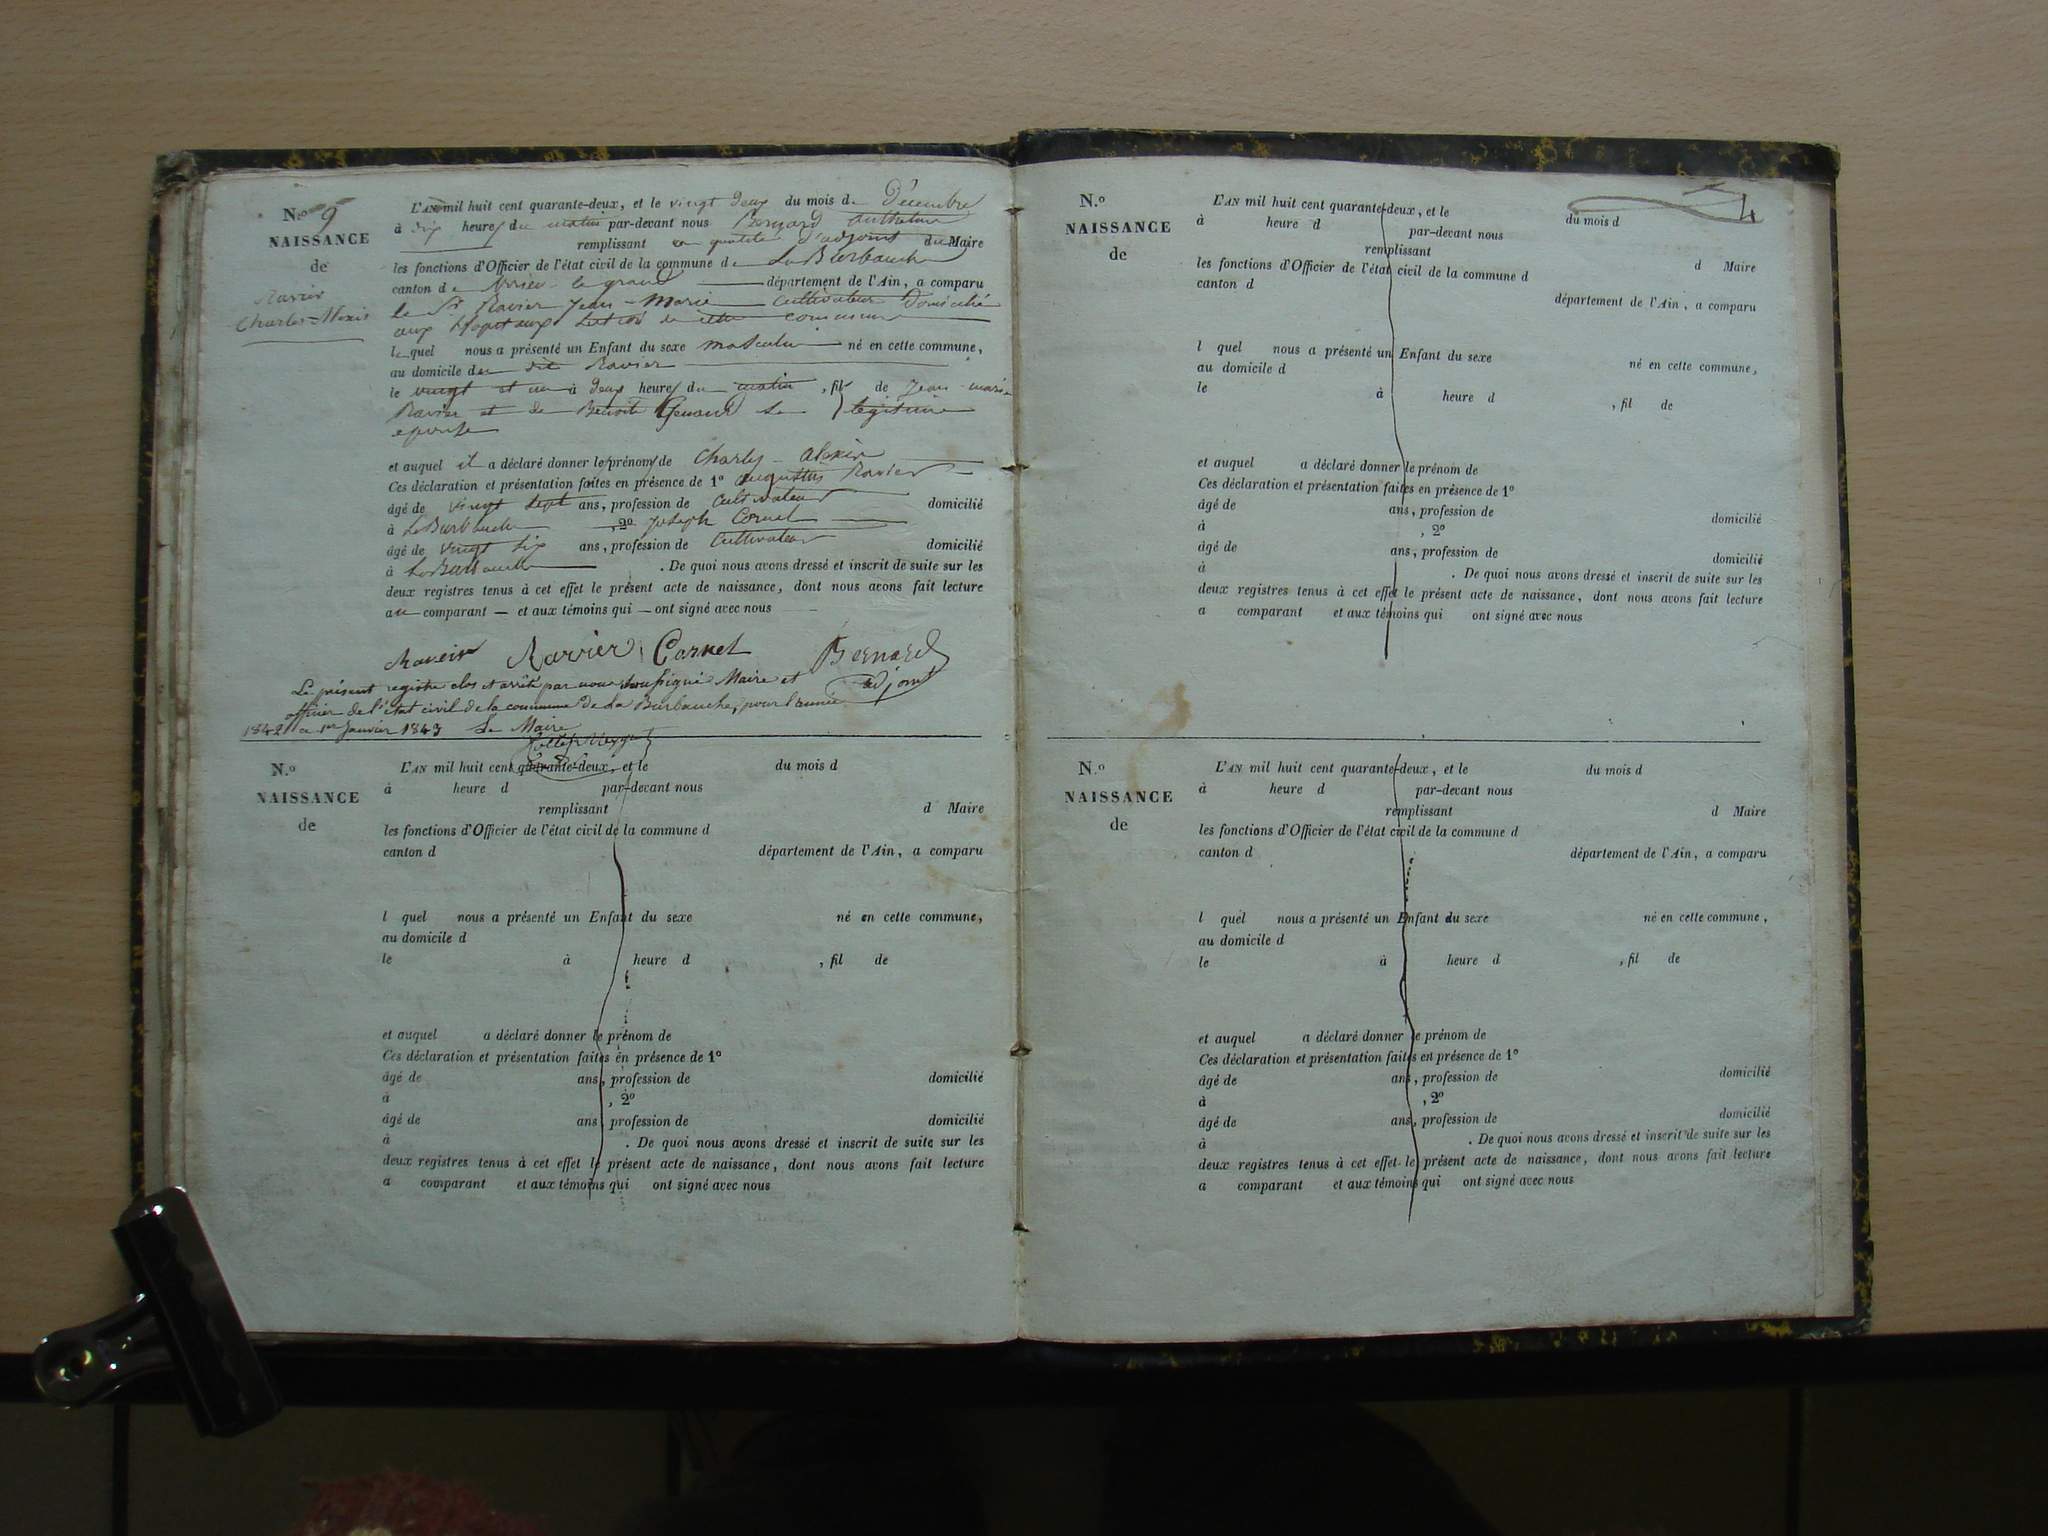 N.o 9
NAISSANCE
de
Ravier
Charles-Alexis
L'AN mil huit cent quarante-deux, et le vingt deux du mois de Décembre
à dix heures du matin par-devant nous Bernard
remplissant en qualité d'adjoint du Maire
les fonctions d'Officier de l'état civil de la commune de La Burbanche
canton de Virieu le grand département de l'Ain, a comparu
le Sr Ravier Jean-Marie cultivateur domicilié
aux hopitaux de cette commune
lequel nous a présenté un Enfant du sexe masculin né en cette commune,
au domicile du dit Ravier
le vingt et un à deux heures du matin, fils de Jean-marie
Ravier et de Benoite Genand Sa légitime
épouse
et auquel il a déclaré donner les prénoms de Charles alexis
Ces déclaration et présentation faites en présence de 1o Ravier
âgé de vingt sept ans, profession de Cultivateur domicilié
à La Burbanche, 2o Joseph Cornet
âgé de vingt six ans, profession de Cultivateur domicilié
à La Burbanche. De quoi nous avons dressé et inscrit de suite sur les
deux registres tenus à cet effet le présent acte de naissance, dont nous avons fait lecture
au comparant — et aux témoins qui — ont signé avec nous
Ravier Cornet Bernard
adjoint
Le présent registre clos et arrêté par nous soussigné Maire et
officier de l'état civil de la commune de La Burbanche, pour l'année
1842 ce 1er Janvier 1843 Le Maire
N.o
NAISSANCE
de
L'AN mil huit cent quarante-deux, et le du mois d
à heure d par-devant nous
remplissant d Maire
les fonctions d'Officier de l'état civil de la commune d
canton d département de l'Ain, a comparu
l quel nous a présenté un Enfant du sexe né en cette commune,
au domicile d
le à heure d , fil de
et auquel a déclaré donner le prénom de
Ces déclaration et présentation faites en présence de 1o
âgé de ans, profession de domicilié
à , 2o
âgé de ans, profession de domicilié
à . De quoi nous avons dressé et inscrit de suite sur les
deux registres tenus à cet effet le présent acte de naissance, dont nous avons fait lecture
a comparant et aux témoins qui ont signé avec nous
N.o
NAISSANCE
de
L'AN mil huit cent quarante-deux, et le du mois d
à heure d par-devant nous
remplissant d Maire
les fonctions d'Officier de l'état civil de la commune d
canton d département de l'Ain, a comparu
l quel nous a présenté un Enfant du sexe né en cette commune,
au domicile d
le à heure d , fil de
et auquel a déclaré donner le prénom de
Ces déclaration et présentation faites en présence de 1o
âgé de ans, profession de domicilié
à , 2o
âgé de ans, profession de domicilié
à . De quoi nous avons dressé et inscrit de suite sur les
deux registres tenus à cet effet le présent acte de naissance, dont nous avons fait lecture
a comparant et aux témoins qui ont signé avec nous
N.o
NAISSANCE
de
L'AN mil huit cent quarante-deux, et le du mois d
à heure d par-devant nous
remplissant d Maire
les fonctions d'Officier de l'état civil de la commune d
canton d département de l'Ain, a comparu
l quel nous a présenté un Enfant du sexe né en cette commune,
au domicile d
le à heure d , fil de
et auquel a déclaré donner le prénom de
Ces déclaration et présentation faites en présence de 1o
âgé de ans, profession de domicilié
à , 2o
âgé de ans, profession de domicilié
à . De quoi nous avons dressé et inscrit de suite sur les
deux registres tenus à cet effet le présent acte de naissance, dont nous avons fait lecture
a comparant et aux témoins qui ont signé avec nous